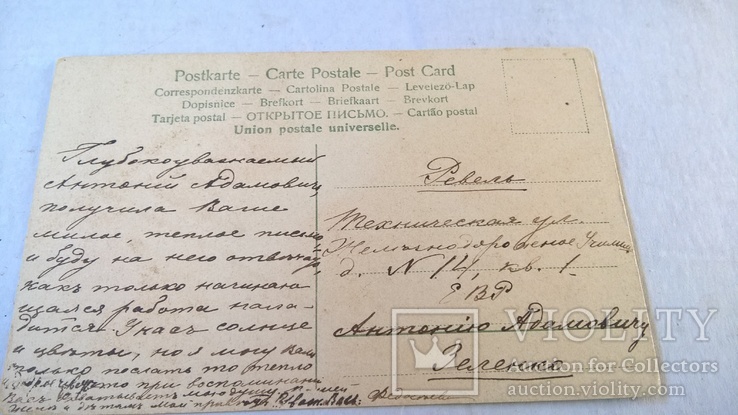 Postkarte – Carte Postale – Post Card
Correspondenzkarte – Cartolina Postale – Levelező-Lap
Dopisnice – Brefkort – Briefkaart – Brevkort
Tarjeta postal – ОТКРЫТОЕ ПИСЬМО. – Cartão postal
Union postale universelle.
Глубокоуважаемый
Антоній Адамович,
получила Ваше
милое, теплое письмо
и буду на него отвечать,
какъ только начинаю-
щаяся работа нала-
дится. У насъ солнце
и цвѣты, но я могу Вамъ
только послать то тепло
что при воспоминани
Васъ
Ревель
Техническая ул.
Желѣзнодорожное Училище
д. N 14, кв. 1.
Е В Р
Антонію Адамовичу
Зеленко
VIOLITY
Auction for Collectors
auction.violity.com